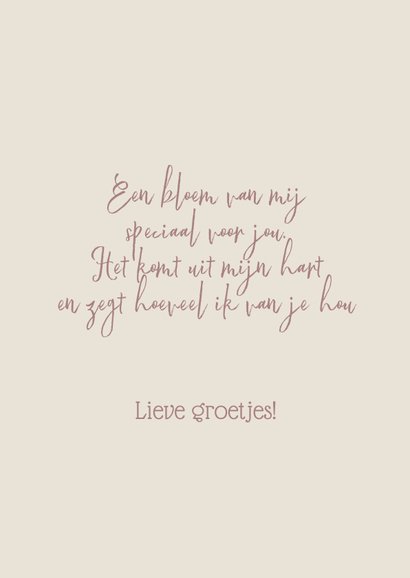 Een bloem van mij
speciaal voor jou.
Het komt uit mijn hart
en zegt hoeveel ik van je hou
Lieve groetjes!